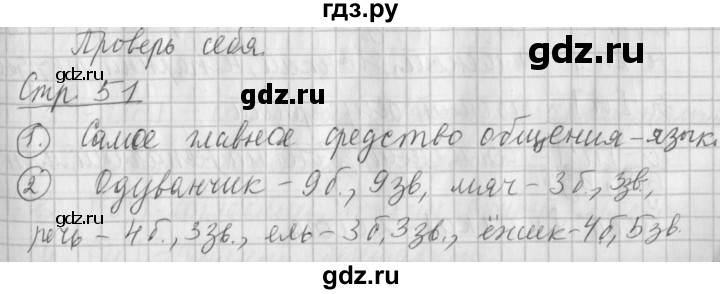 гдз.ру
Проверь себя.
gdz.ru
gdz.ru
gdz.ru
Стр. 51
1. Самое главное средство общения - язык.
gdz.ru
gdz.ru
2 Одуванчик - 9б., 9зв, мяч - 3б., 3зв,
речь - 4б., 3зв., ель - 3б, 3зв., ёжик - 4б, 5зв.
gdz.ru
gdz.ru
gdz.ru